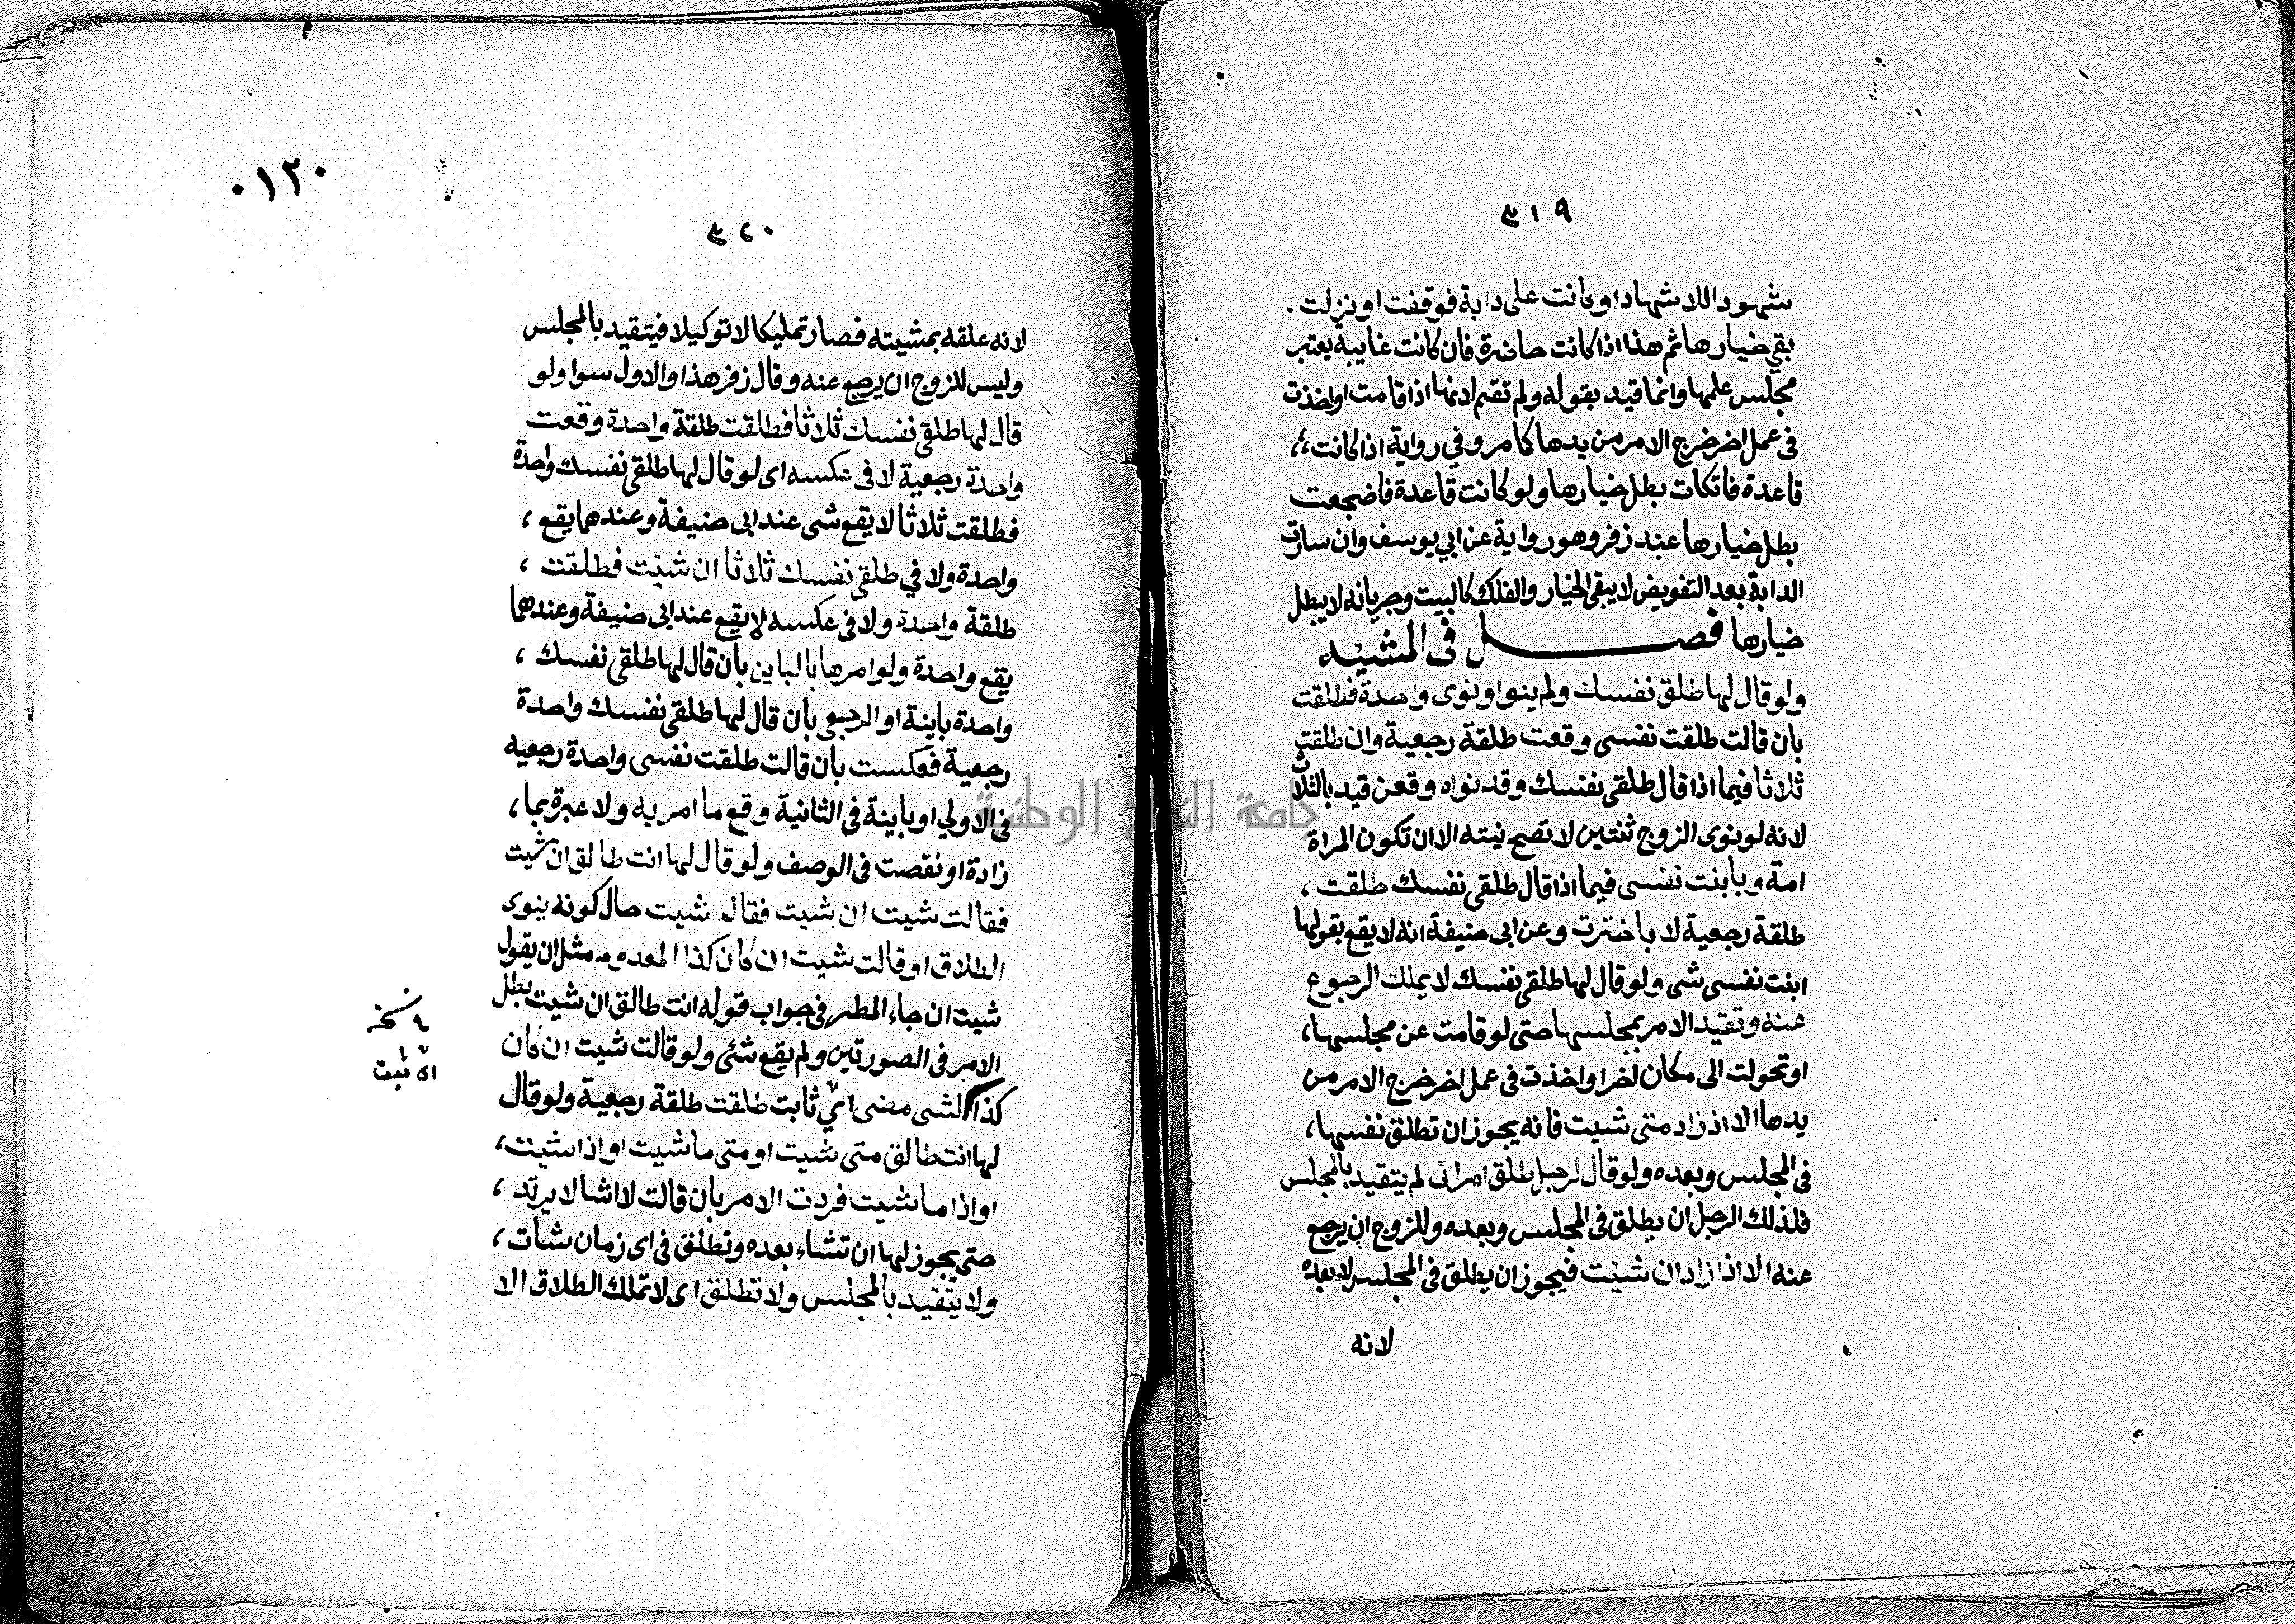 ٣١٩
شهود اللاشهاد او كانت على دابة فوقفت او نزلت .
بقي خيارها ثم هذا اذا كانت حاضرة فان كانت غايبة يعتبر
مجلس علمها وانما قيد بقوله ولم تقم لانها اذا قامت او اخذت
في عمل اخر خرج الامر من يدها كما مر وفي رواية اذا كانت ،،
قاعدة فاتكات بطل خيارها ولو كانت قاعدة فاضجعت
بطل خيارها عند زفر وهو رواية عن ابي يوسف وان سارت
الدابة بعد التفويض لا يبقى الخيار والفلك كالبيت وجريانه لا يبطل
خيارها فصل في المشيه
ولو قال لها طلقي نفسك ولم ينو او نوى واحدة فطلقت
بان قالت طلقت نفسى وقعت طلقة رجعية وان طلقت
ثلاثا فيما اذا قال طلقي نفسك وقد نواه وقعن قيد بالثلاث
لانه لو نوى الزوج ثنتين لا تصح نيته الا ان تكون المراة
امة وبابنت نفسى فيما اذا قال طلقي نفسك طلقت ،
طلقة رجعية لا باخترت وعن ابى حنيفة انه لا يقع بقولها
ابنت نفسى شى ولو قال لها طلقي نفسك لا يملك الرجوع
عنه وتقيد الامر بمجلسها حتى لو قامت عن مجلسها ،
او تحولت الى مكان اخر او اخذت في عمل اخر خرج الامر من
يدها الا اذ زاد متى شيت فانه يجوز ان تطلق نفسها ،
في المجلس وبعده ولو قال لرجل طلق امراتى لم يتقيد بالمجلس
فلذلك الرجل ان يطلق في المجلس وبعده وللزوج ان يرجع
عنه الا اذا زاد ان شيت فيجوز ان يطلق في المجلس لا بعده
لانه
٠١٢٠
٣٢٠
لانه علقه بمشيته فصار تمليكا لا توكيلا فيتقيد بالمجلس
وليس للزوج ان يرجع عنه وقال زفر هذا والاول سوا ولو
قال لها طلقي نفسك ثلاثا فطلقت طلقة واحدة وقعت
واحدة رجعية لا في عكسه اى لو قال لها طلقي نفسك واحدة
فطلقت ثلاثا لا يقع شى عند ابى حنيفة وعندهما يقع ،
واحدة ولا في طلقي نفسك ثلاثا ان شيت فطلقت ،
طلقة واحدة ولا في عكسه لا يقع عند ابى حنيفة وعندهما
يقع واحدة ولو امرها بالباين بان قال لها طلقي نفسك ،
واحدة باينة او الرجعي بان قال لها طلقي نفسك واحدة
رجعية فعكست بان قالت طلقت نفسى واحدة رجعيه
في الاولي او باينة في الثانية وقع ما امر به ولا عبرة بما ،
زادة او نقصت في الوصف ولو قال لها انت طالق ان شيت
فقالت شيت ان شيت فقال شيت حال كونه ينوى
الطلاق او قالت شيت ان كان كذا المعدوم مثل ان يقول
شيت ان جاء المطر في جواب قوله انت طالق ان شيت بطل
الامر في الصورتين ولم يقع شئ ولو قالت شيت ان كان
كذا لشى مضى اي ثابت طلقت طلقة رجعية ولو قال
لها انت طالق متى شيت او متى ما شيت او اذا شيت ،
او اذا ما شيت فردت الامر بان قالت لا اشا لا يرتد ،
حتى يجوز لها ان تشاء بعده وتطلق في اى زمان شات ،
ولا يتقيد بالمجلس ولا تطلق اى لا تملك الطلاق الا
نسخه
جامعة النجاح الوطنية